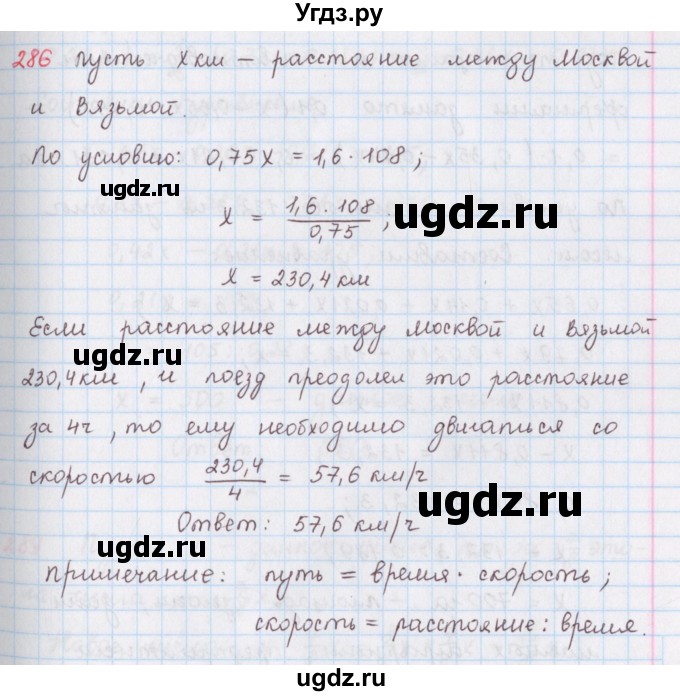 Угдз.ру
286 Пусть x км – расстояние между Москвой
и Вязьмой.
По условию: 0,75x = 1,6 · 108 ;
x = 1,6 · 108 / 0,75 ;
x = 230,4 км
Если расстояние между Москвой и Вязьмой
230,4 км , и поезд преодолел это расстояние
за 4ч , то ему необходимо двигаться со
скоростью 230,4 / 4 = 57,6 км/ч
Ответ: 57,6 км/ч
Примечание: путь = время · скорость ;
скорость = расстояние : время.
ugdz.ru
ugdz.ru
ugdz.ru
ugdz.ru
ugdz.ru
ugdz.ru
ugdz.ru